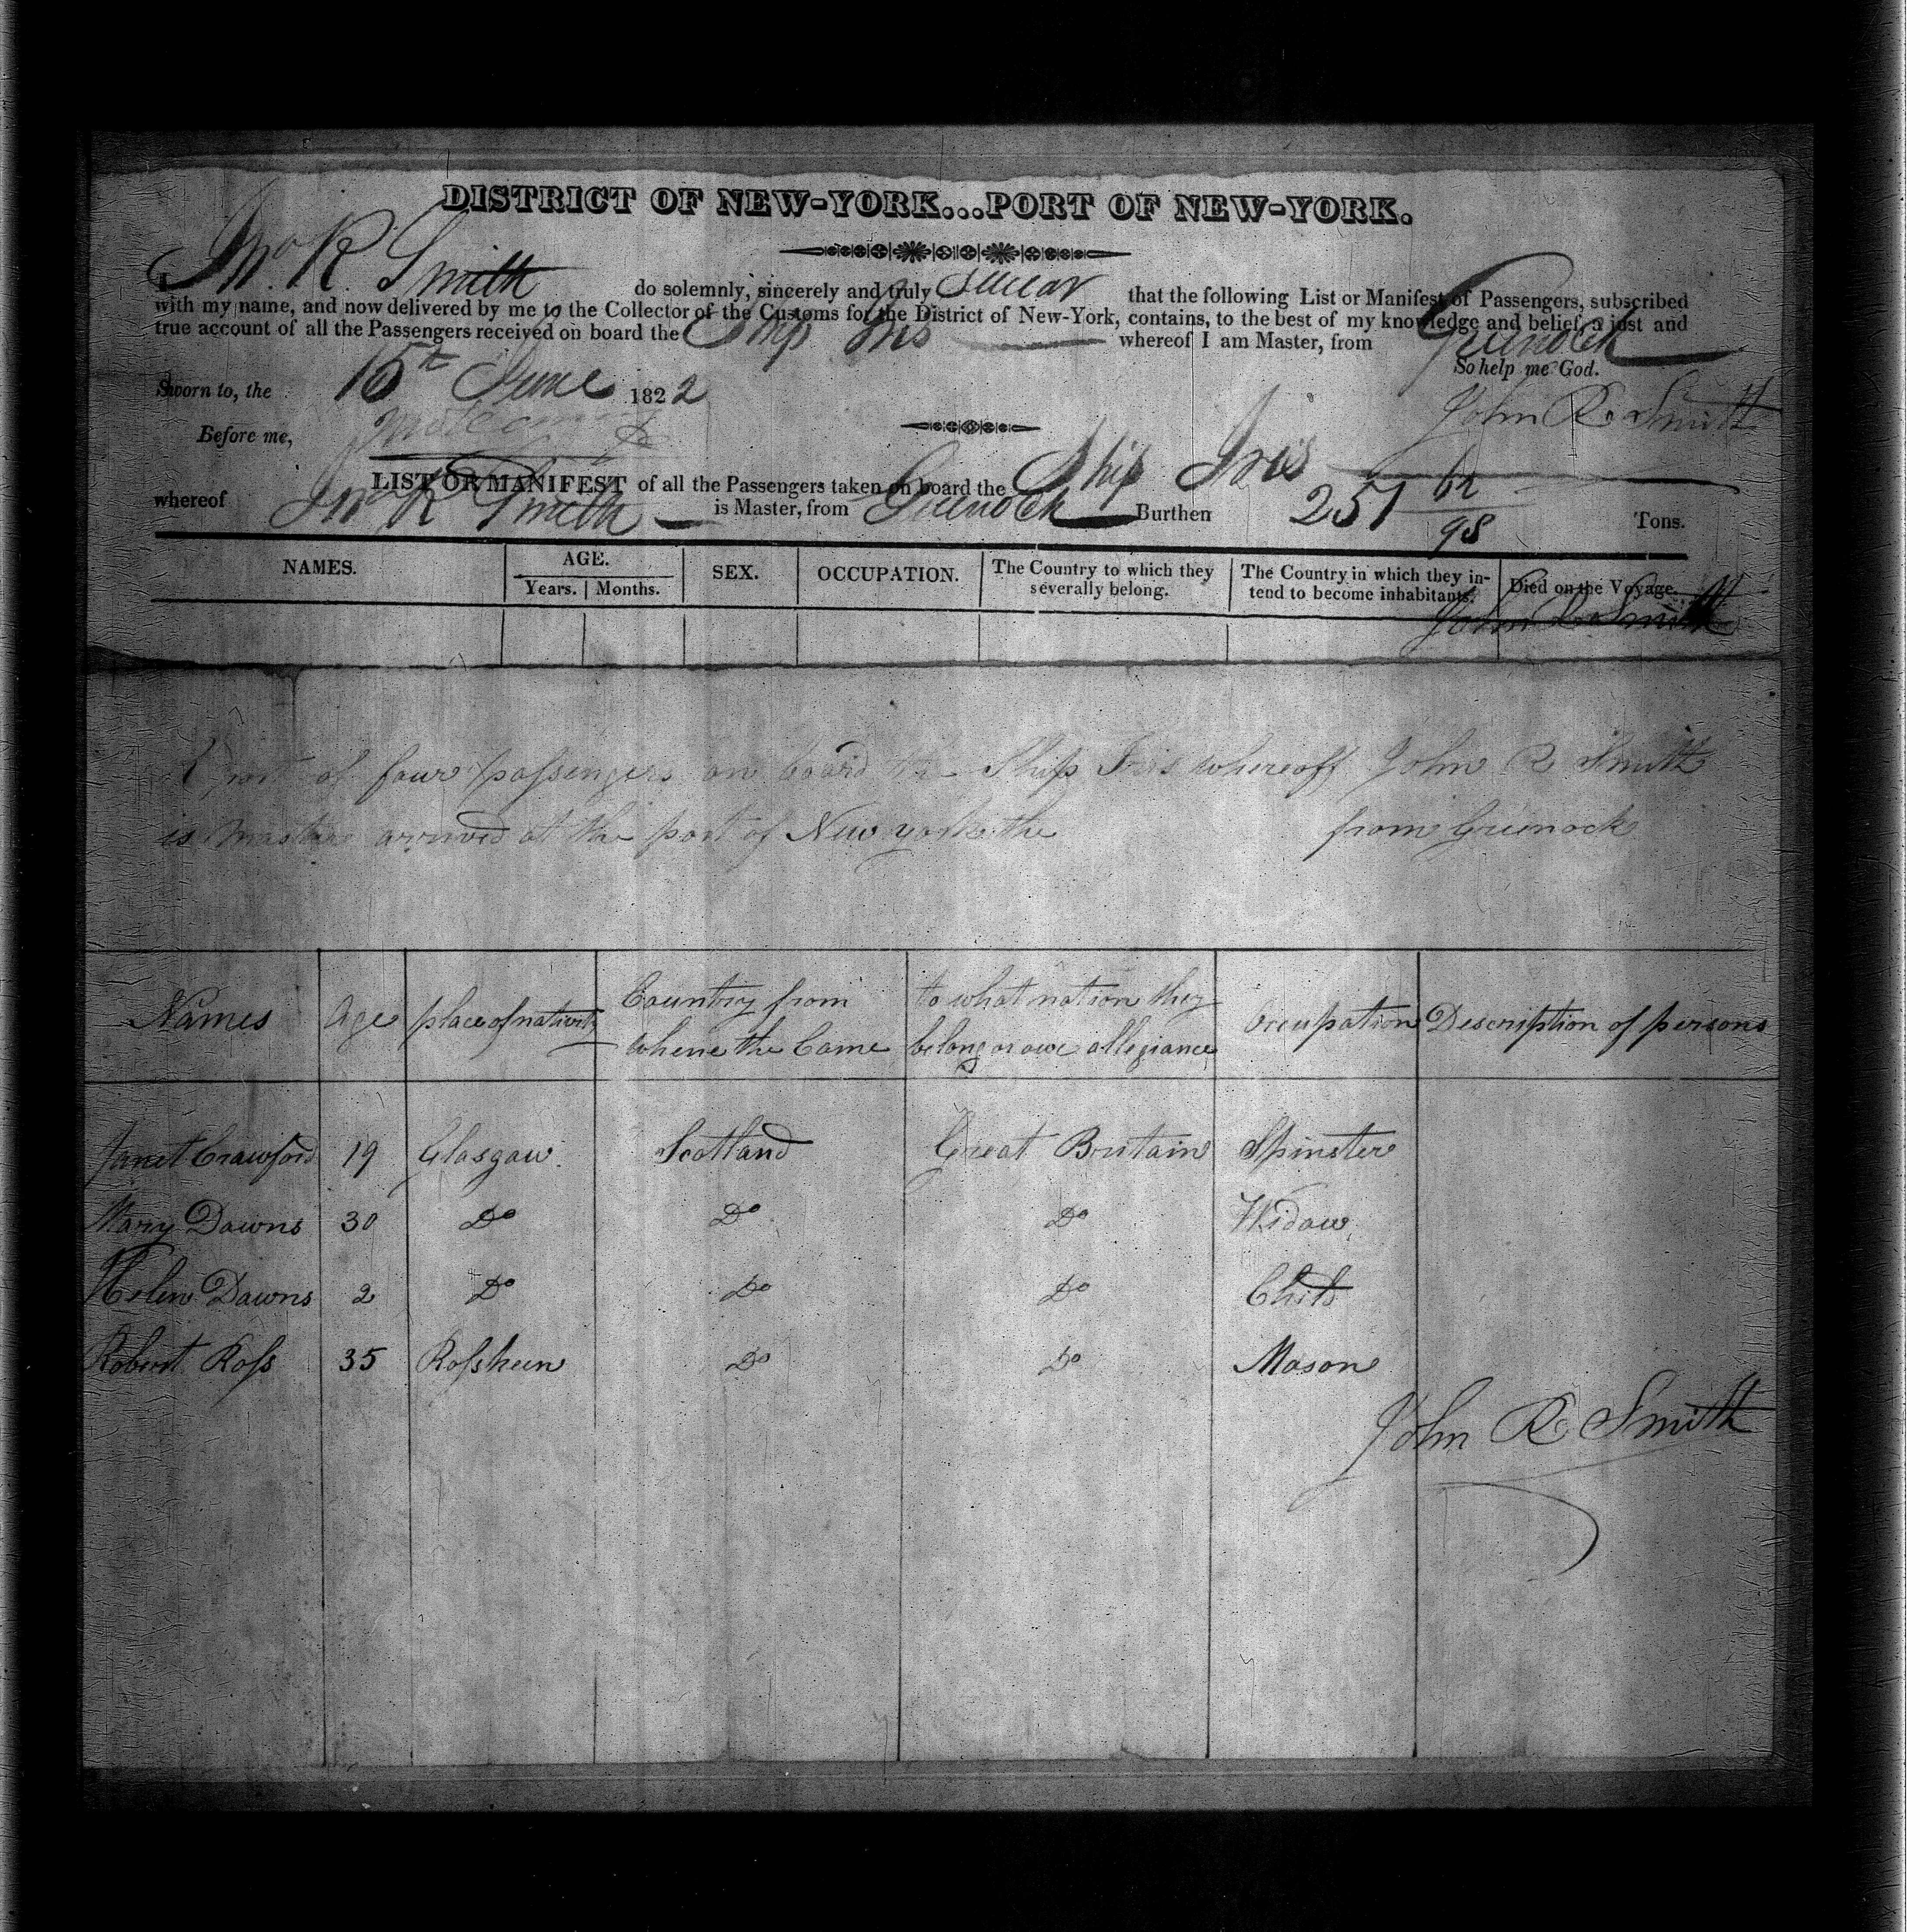 DISTRICT OF NEW-YORK...PORT OF NEW-YORK.
I Jno. R. Smith do solemnly, sincerely and truly swear that the following List or Manifest of Passengers, subscribed
with my name, and now delivered by me to the Collector of the Customs for the District of New-York, contains, to the best of my knowledge and belief, a just and
true account of all the Passengers received on board the Ship Iris whereof I am Master, from Greenock
So help me God.
Sworn to, the 15th June 1822
John R Smith
Before me,
LIST OR MANIFEST of all the Passengers taken on board the Ship Iris
whereof Jno R Smith is Master, from Greenock Burthen 251 62/98 Tons.
NAMES. AGE. SEX. OCCUPATION. The Country to which they severally belong. The Country in which they in-tend to become inhabitants. Died on the Voyage.
Years. Months.
John R Smith
of four passengers on board the Ship Iris whereoff John R Smith
is Master arrived at the port of New york the from Greenock
Names Age place of nativity Country from to what nation they Occupation Description of persons
whene the Came belong or owe allegiance
Janet Crawford 19 Glasgow Scotland Great Britain Spinster
Mary Downs 30 Do Do Do Widow
Helen Downs 2 Do Do Do Child
Robert Ross 35 Do Do Mason
John R Smith